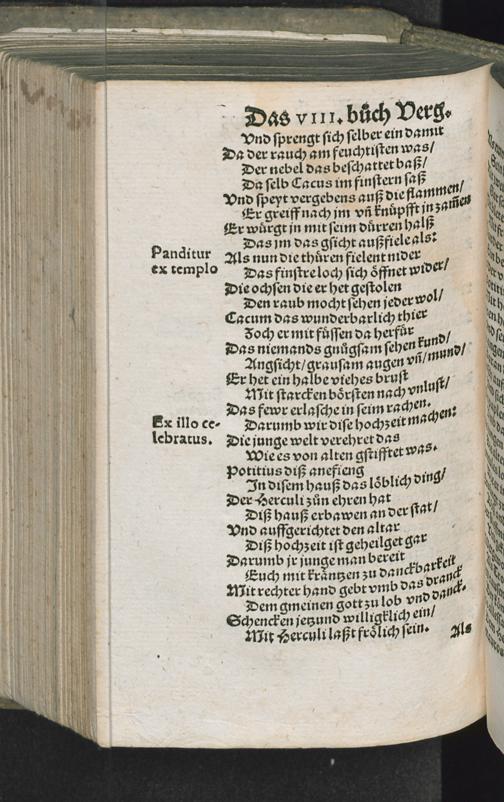 Das VIII. bůch Verg.
Vnd sprengt sich selber ein damit
Da der rauch am feuchtisten was/
Der nebel das beschattet baß/
Da selb Cacus im finstern saß
Vnd speyt vergebens auß die flammen/
Er greiff nach jm vñ knüpfft in zam̃en
Er würgt jn mit seim dürren halß
Das jm das gsicht außfiele als:
Panditur
ex templo
Als nun die thüren fielent nider
Das finstre loch sich öffnet wider/
Die ochsen die er het gestolen
Den raub mocht sehen jeder wol/
Cacum das wunderbarlich thier
Zoch er mit füssen da herfür
Das niemands gnůgsam sehen kund/
Angsicht/grausam augen vñ/mund/
Er het ein halbe viehes brust
Mit starcken börsten nach vnlust/
Das fewr erlasche in seim rachen.
Ex illo ce-
lebratus.
Darumb wir dise hochzeit machen:
Die junge welt verehret das
Wie es von alten gstifftet was.
Potitius diß anefieng
In disem hauß das löblich ding/
Der Herculi zůn ehren hat
Diß hauß erbawen an der stat/
Vnd auffgerichtet den altar
Diß hochzeit ist geheilget gar
Darumb jr junge man bereit
Euch mit kräntzen zu danckbarkeit
Mit rechter hand gebt vmb das dranck
Dem gmeinen gott zu lob vnd danck.
Schencken jetzund willigklich ein/
Mit Herculi laßt frölich sein.
Als